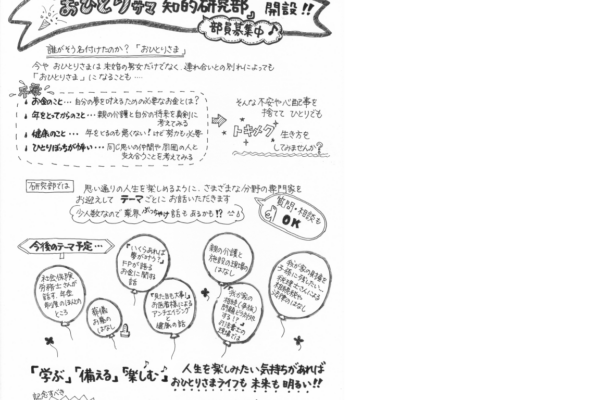 おひとりサマ 知的研究部」 開設!!
部員募集中♪
誰がそう名付けたのか?「おひとりさま」
今や おひとりさまは 未婚の男女だけでなく、連れ合いとの別れによっても
「おひとりさま」になることも…
不安
お金のこと… 自分の夢を叶えるための必要なお金とは?
年をとってからのこと… 親の介護と自分の将来を真剣に
考えてみる
健康のこと… 年をとるのも悪くない!けど努力も必要
ひとりぼっちが怖い… 同じ思いの仲間や周囲の人と
支え合うことを考えてみる
そんな不安や心配事を
捨てて ひとりでも
トキメク 生き方を
してみませんか?
研究部では
思い通りの人生を楽しめるように、さまざまな分野の専門家を
お迎えして テーマごとに お話いただきます
少人数なので 業界 ぶっちゃけ話もあるかも!?
質問・相談も
OK
今後のテーマ予定…
社会保険
労務士さんが
話す 年金
制度のほんとの
ところ
葬儀
お墓の
はなし
「いくらあれば
夢が叶う?」
FPが語る
お金に関する
話
「見た目も大事!」
お医者様による
アンチエイジング
と
健康の話
親の介護と
施設の現場の
はなし
我が家の
相続(争族)
問題どう対処
する!?
行政書士の
現場では
我が家の財産を
子孫に残したい。
税理士さんによる
相続税や
法律のはなし
「学ぶ」「備える」「楽しむ」
人生を楽しみたい気持ちがあれば
おひとりさまライフも 未来も 明るい!!
記念すべき